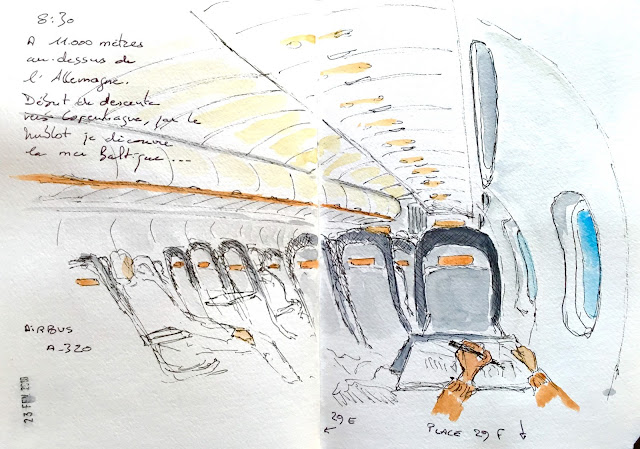 8:30
A 11.000 mètres
au-dessus de
l'Allemagne.
Début de descente
vers Copenhague, par le
hublot je découvre
la mer Baltique...
AiRBUS
A-320
29 E
PLACE 29 F